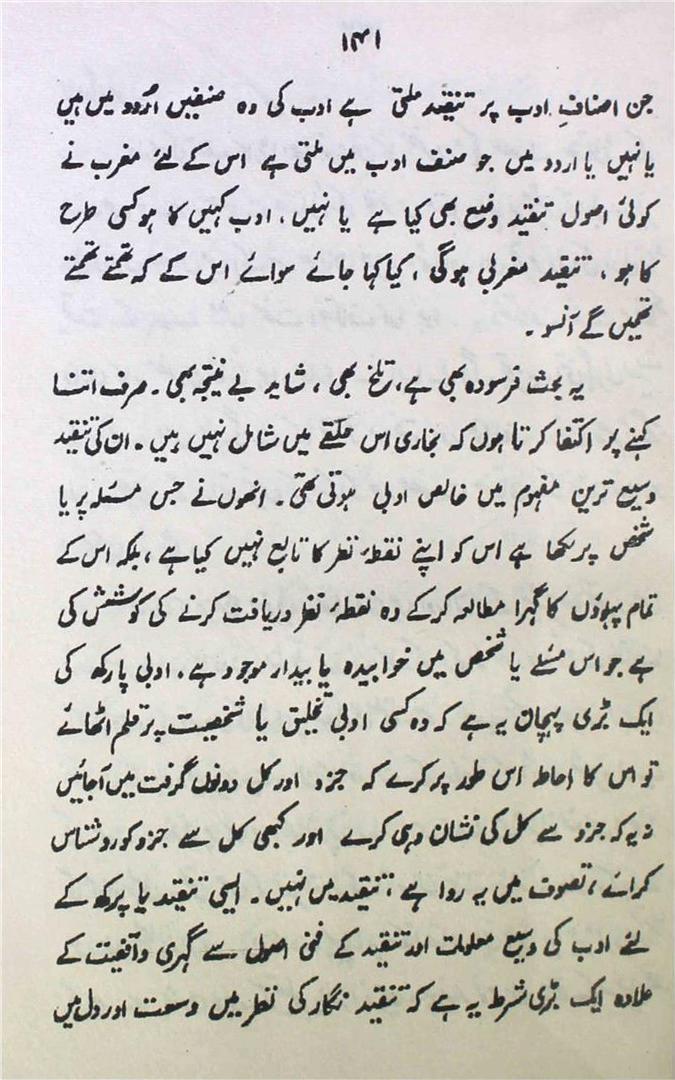 ۱۴۱
جن اصنافِ ادب پر تنقید ملتی ہے ادب کی وہ صنفیں اُردو میں ہیں
یا نہیں یا اردو میں جو صنف ادب میں ملتی ہے اس کے لئے مغرب نے
کوئی اصول تنقید وضع بھی کیا ہے یا نہیں، ادب کہیں کا ہو کسی طرح
کا ہو، تنقید مغربی ہوگی، کیا کہا جائے سوائے اس کے کہ تھمتے تھمتے
تھمیں گے آنسو۔
یہ بحث فرسودہ بھی ہے، تلخ بھی، شاید بے نتیجہ بھی۔ صرف اتنا
کہنے پر اکتفا کرتا ہوں کہ بخاری اس حلقے میں شامل نہیں ہیں۔ ان کی تنقید
وسیع ترین مفہوم میں خالص ادبی ہوتی تھی۔ انھوں نے جس مسئلہ پر یا
شخص پر لکھا ہے اس کو اپنے نقطۂ نظر کا تابع نہیں کیا ہے، بلکہ اس کے
تمام پہلوؤں کا گہرا مطالعہ کر کے وہ نقطۂ نظر دریافت کرنے کی کوشش کی
ہے جو اس مسئلے یا شخص میں خوابیدہ یا بیدار موجود ہے۔ ادبی پارکھ کی
ایک بڑی پہچان یہ ہے کہ وہ کسی ادبی تخلیق یا شخصیت پر قلم اٹھائے
تو اس کا احاطہ اس طور پر کرے کہ جزو اور کل دونوں گرفت میں آجائیں
نہ یہ کہ جزو سے کل کی نشان دہی کرے اور کبھی کل سے جزو کو روشناس
کرائے، تصوف میں یہ روا ہے، تنقید میں نہیں۔ ایسی تنقید یا پرکھ کے
لئے ادب کی وسیع معلومات اور تنقید کے فنی اصول سے گہری واقفیت کے
علاوہ ایک بڑی شرط یہ ہے کہ تنقید نگار کی نظر میں وسعت اور دل میں